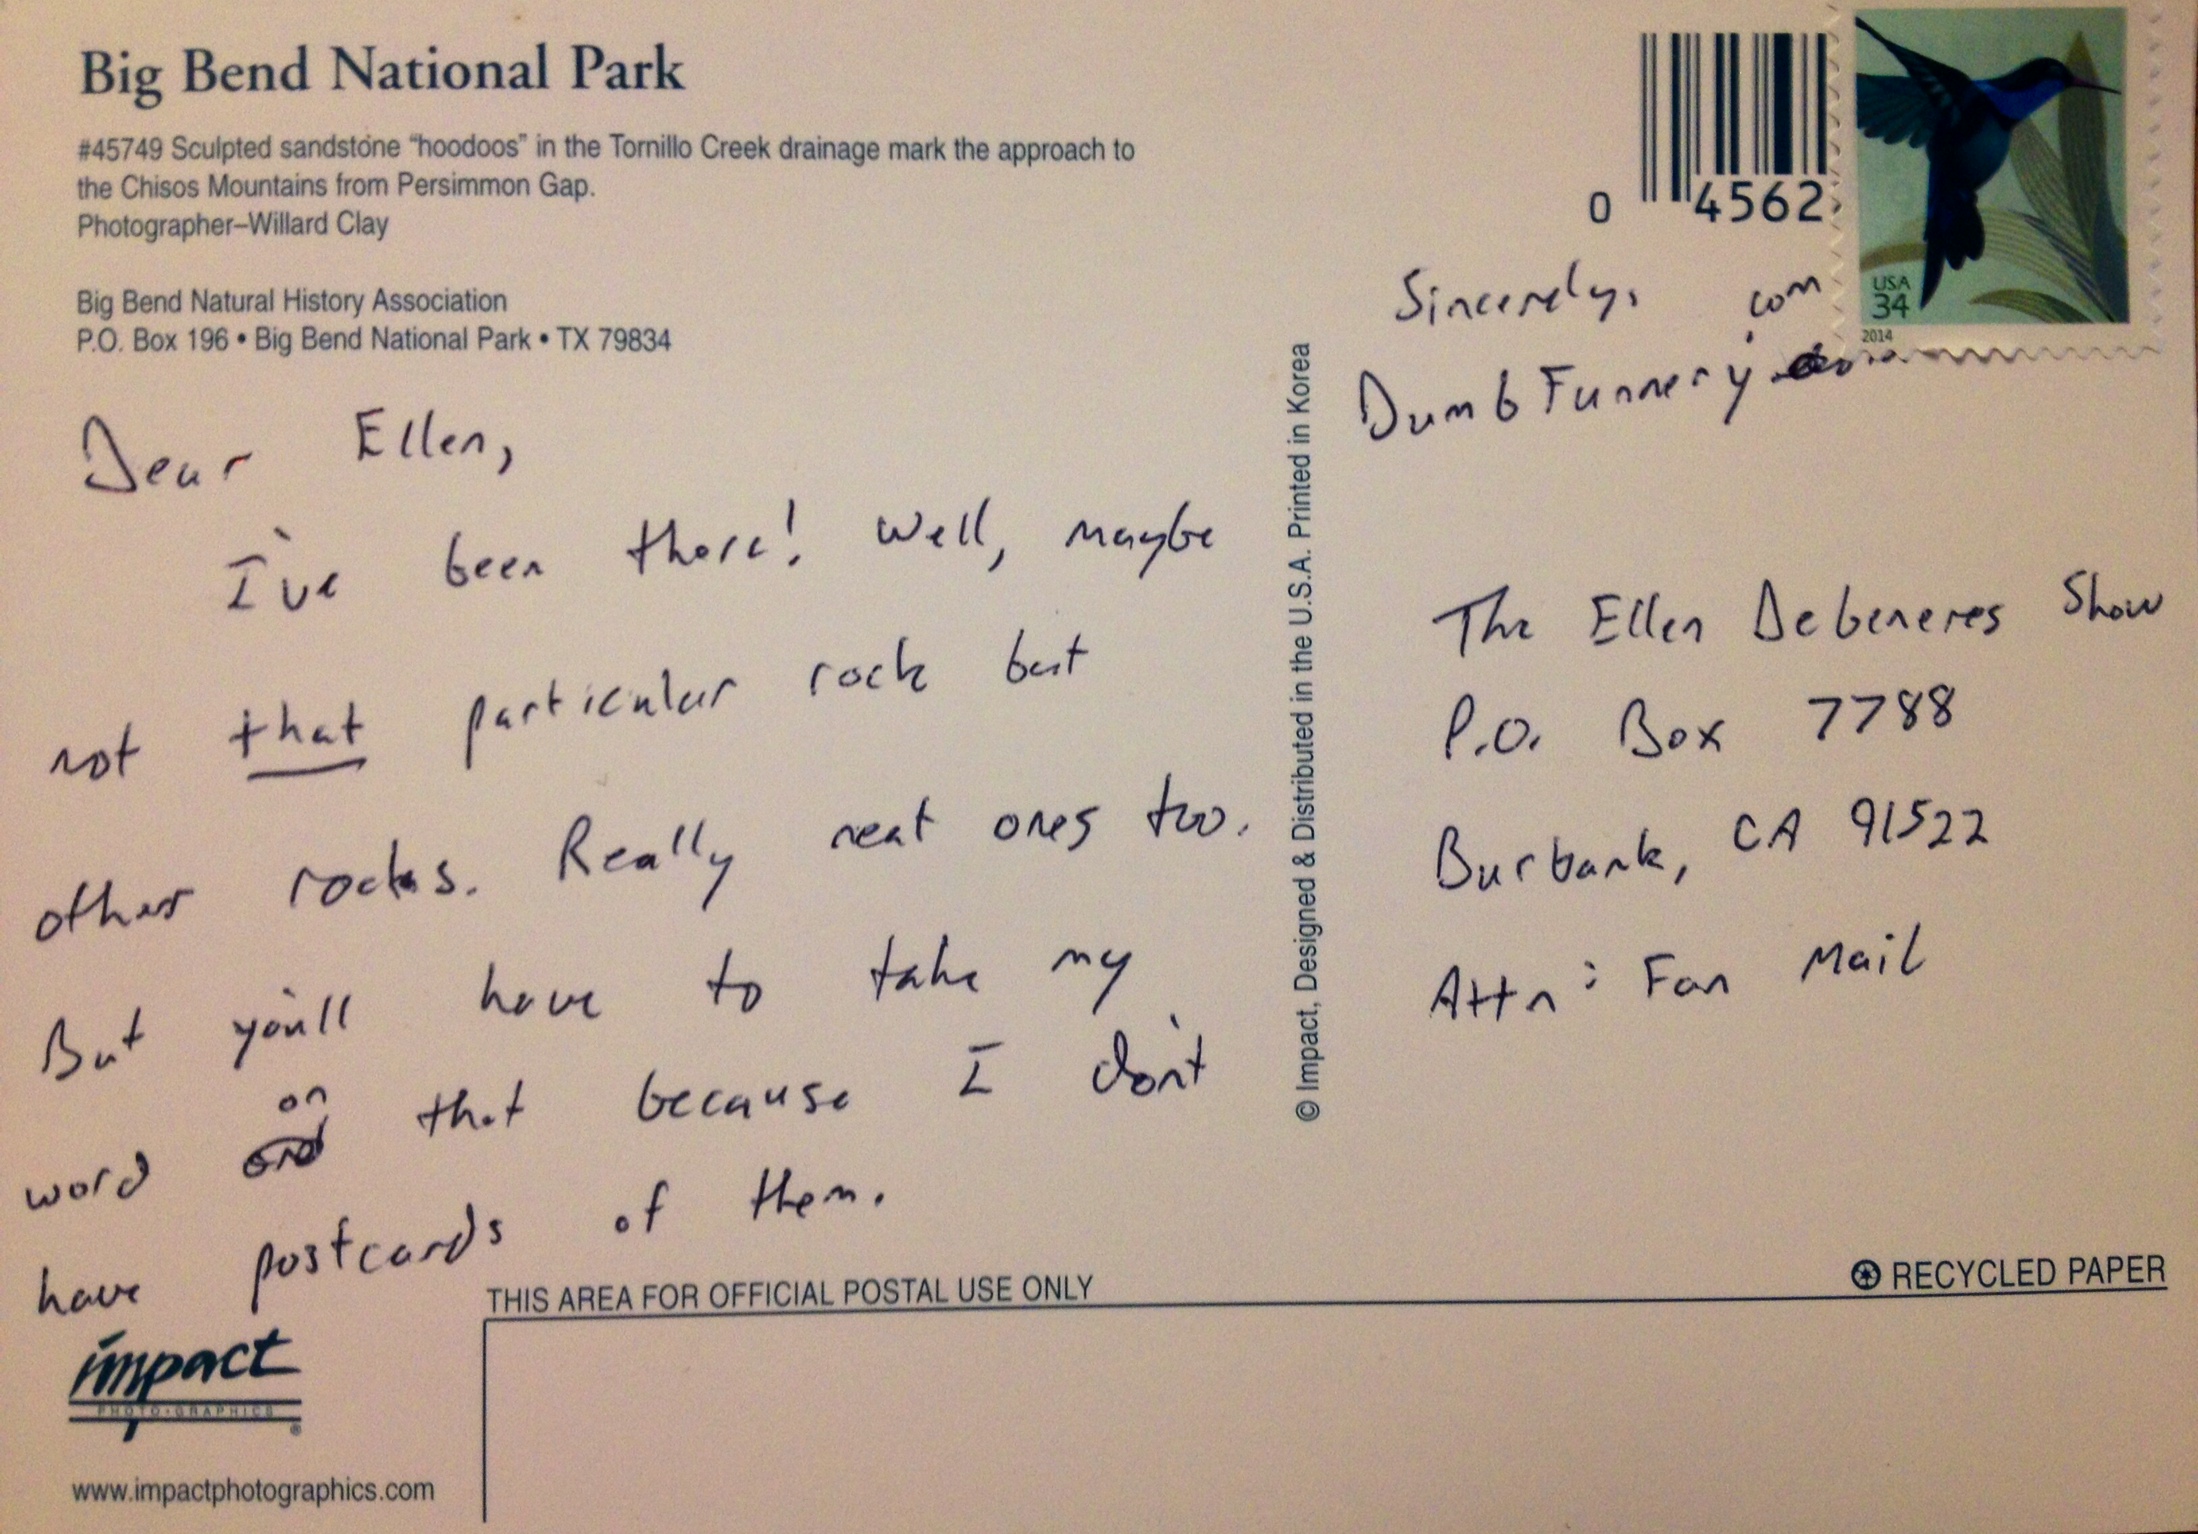 Big Bend National Park
#45749 Sculpted sandstone "hoodoos" in the Tornillo Creek drainage mark the approach to
the Chisos Mountains from Persimmon Gap.
Photographer–Willard Clay
Big Bend Natural History Association
P.O. Box 196 • Big Bend National Park • TX 79834
Dear Ellen,
I've been there! Well, maybe
not that particular rock but
other rocks. Really neat ones too.
But you'll have to take my
word on that because I don't
have postcards of them.
impact
PHOTO•GRAPHICS
®
www.impactphotographics.com
THIS AREA FOR OFFICIAL POSTAL USE ONLY
© Impact, Designed & Distributed in the U.S.A. Printed in Korea
0 4562
USA
34
2014
Sincerely,
DumbFunnery.com
The Ellen Debeneres Show
P.O. Box 7788
Burbank, CA 91522
Attn: Fan Mail
RECYCLED PAPER